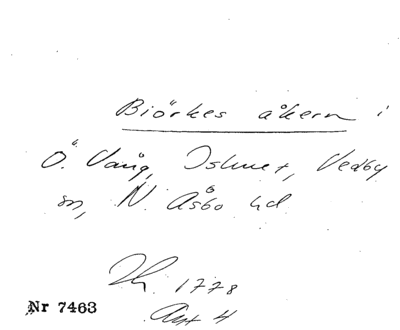 Biörkes åkern i
Ö. Vång, Vedby
sn, N. Åsbo hd.
1778
Akt 4
Nr 7463